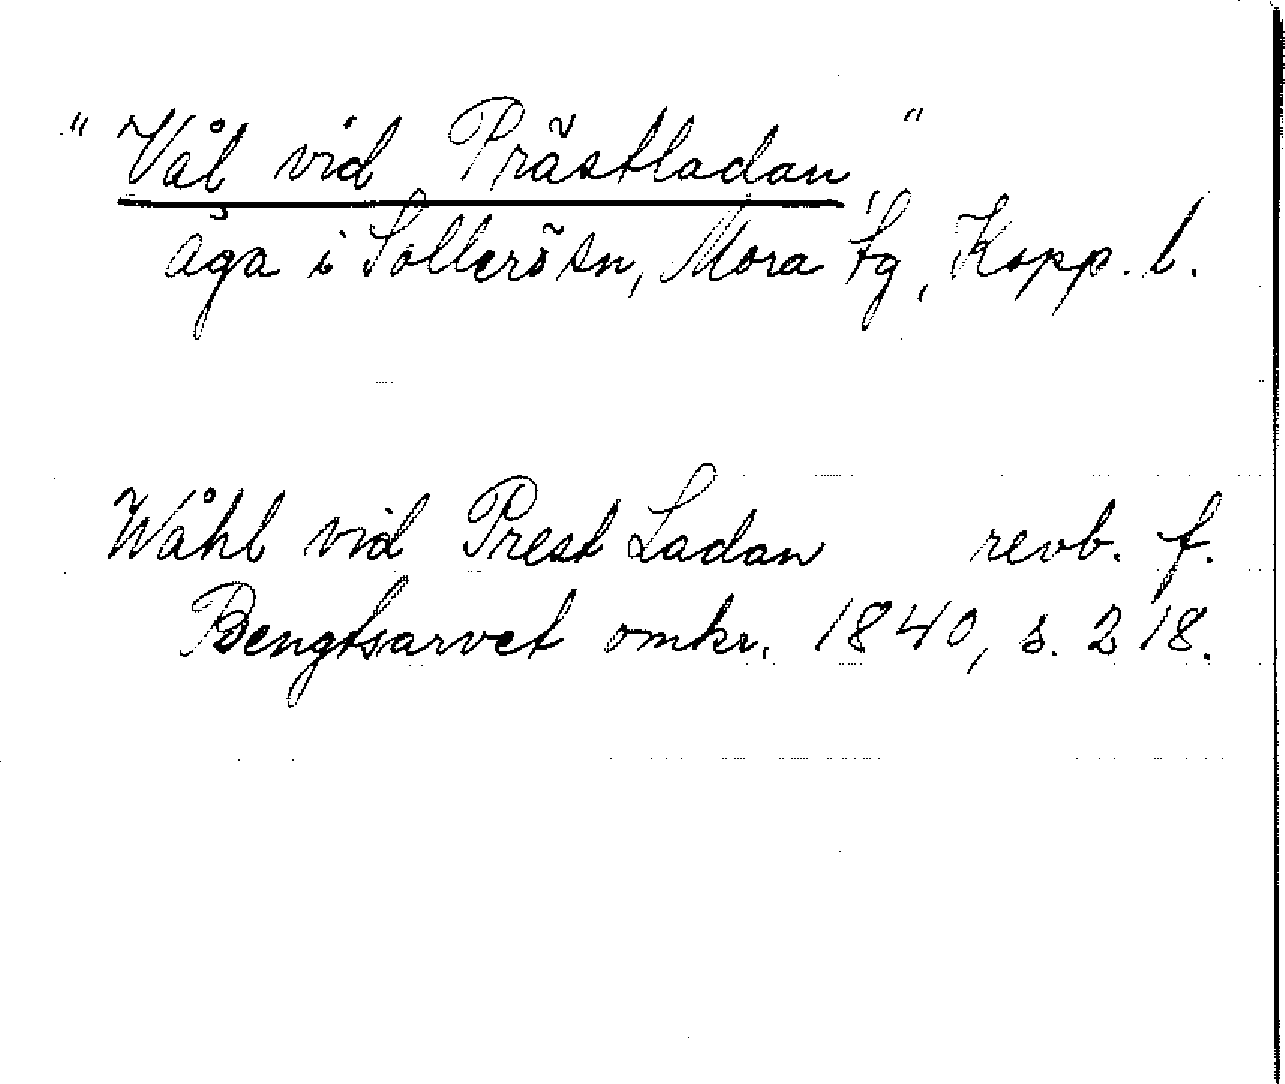 "Vål vid Prästladan"
äga i Sollerö sn, Mora tg, Kopp. l.
Wåhl vid Prest Ladan revb. f.
Bengtsarvet omkr. 1840, s. 218.